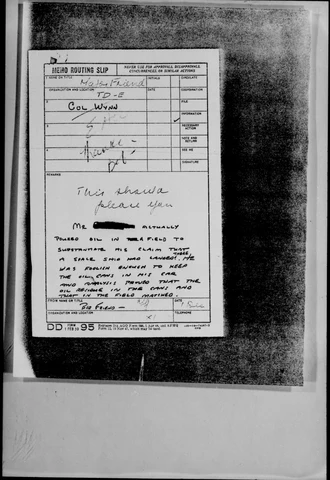 MEMO ROUTING SLIP
NEVER USE FOR APPROVALS, DISAPPROVALS, CONCURRENCES, OR SIMILAR ACTIONS
1 NAME OR TITLE
Maj Friend
INITIALS
CIRCULATE
ORGANIZATION AND LOCATION
TD-E
DATE
COORDINATION
2
COL WYNN
FILE
INFORMATION
3
NECESSARY ACTION
NOTE AND RETURN
4
SEE ME
SIGNATURE
REMARKS
This should
please you
MR ACTUALLY
POURED OIL IN A FIELD TO
SUBSTANTIATE HIS CLAIM THAT
A SPACE SHIP HAD LANDED THERE. HE
WAS FOOLISH ENOUGH TO KEEP
THE OIL CANS IN HIS CAR
AND ANALYSIS PROVED THAT THE
OIL RESIDUE IN THE CANS AND
THAT IN THE FIELD MATCHED.
FROM NAME OR TITLE
FRIEND
DATE
ORGANIZATION AND LOCATION
TELEPHONE
DD FORM 1 FEB 50 95